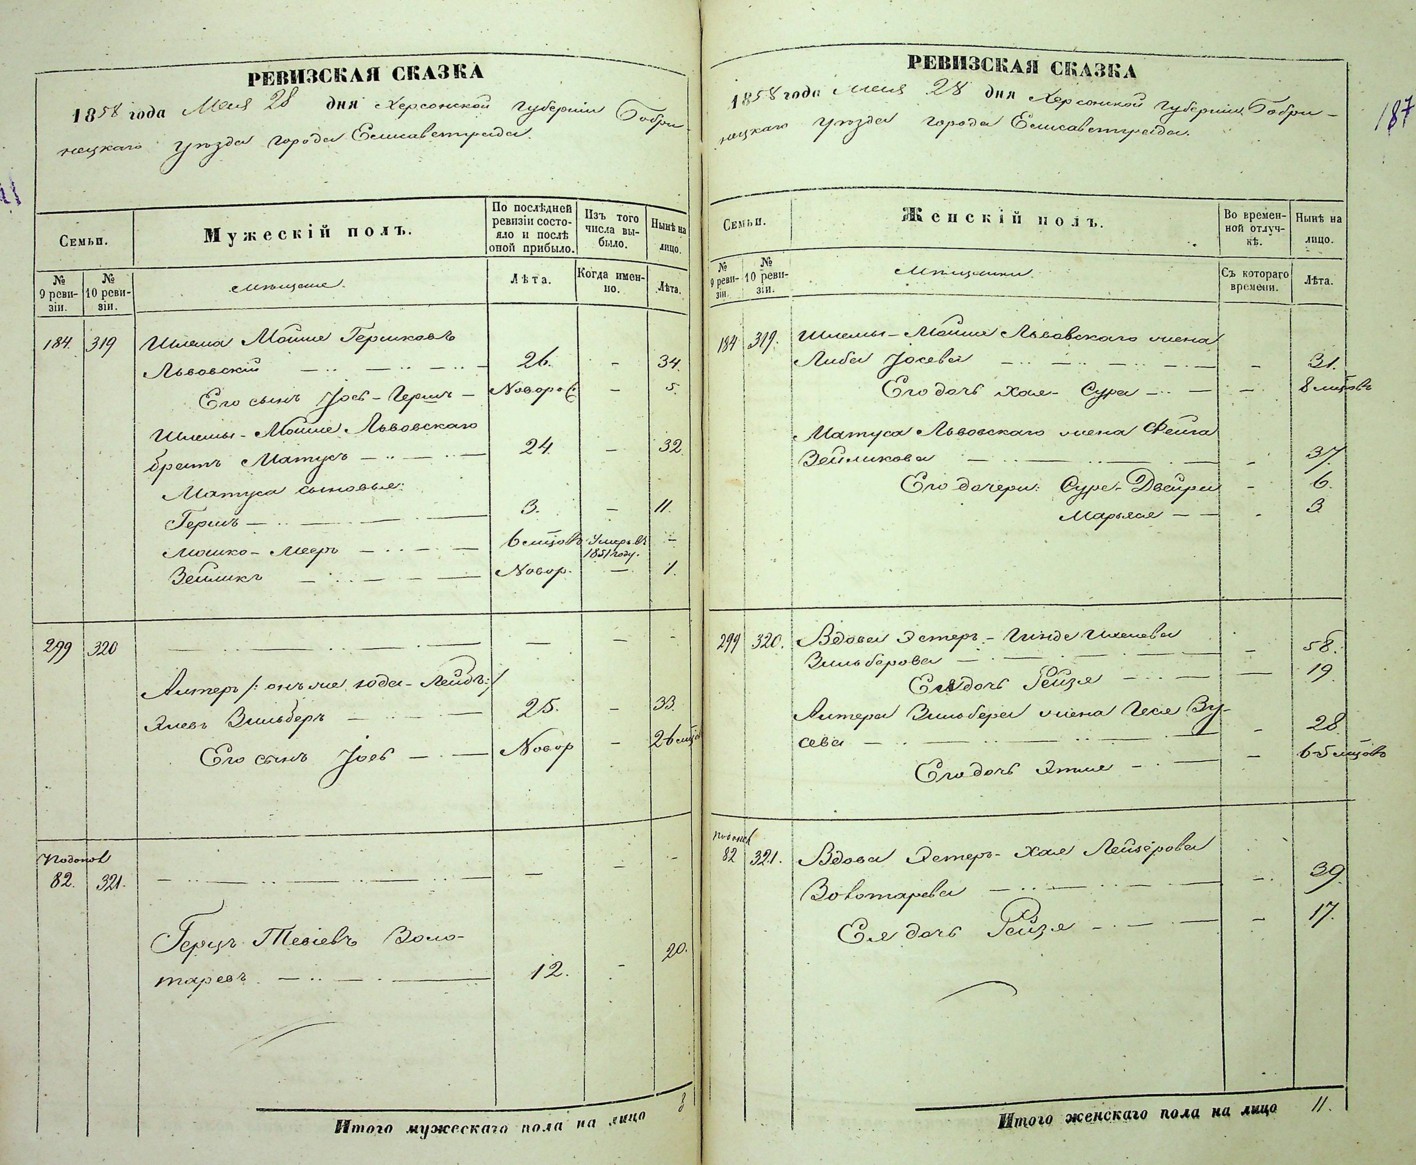 РЕВИЗСКАЯ СКАЗКА
1858 года Мая 28 дня Херсонской губерніи Бобри-
нецкаго уѣзда города Елисаветграда.
Семьи.
Мужескій полъ.
По послѣдней ревизіи состо-
яло и послѣ оной прибыло.
Изъ того числа вы-
было.
Нынѣ на лицо.
№ 9 реви-
зіи.
№ 10 реви-
зіи.
мѣщане.
Лѣта.
Когда имен-
но.
Лѣта.
184. 319 Шлема Мойше Гершковъ
Львовскій 26. – 34.
Его сынъ Іосъ-Гершъ Новоро – 5.
Шлемы-Мойше Львовскаго
братъ Матусъ 24. – 32
Матуса сыновья:
Гершъ 3. – 11.
Мошко-Мееръ 6 мѣцовъ Умеръ въ 1851 году. –
Зейликъ Новор. – 1.
299 320 – – –
Алтеръ /: онъ же Іода-Лейбъ:/
Яневъ Зильберъ 25. – 33.
Его сынъ Іосъ Новор – 2 6 мѣцов
82. 321. – – –
Герцъ Тевіевъ Золо-
таревъ. 12. – 20.
Итого мужескаго пола на лицо 8
РЕВИЗСКАЯ СКАЗКА
187
1858 года Мая 28 дня Херсонской губерніи Бобри-
нецкаго уѣзда города Елисаветграда.
Семьи.
Женскій полъ.
Во времен-
ной отлуч-
кѣ.
Нынѣ на лицо.
№ 9 реви-
зіи.
№ 10 реви-
зіи.
мѣщанки.
Съ котораго времени.
Лѣта.
184 319. Шлемы-Мойше Львовскаго жена
Либа Іосева – 31.
Его дочь Хая-Сура – 8 мѣцовъ
Матуса Львовскаго жена Фейга
Зейликова – 37.
Его дочери: Сура-Двейра – 6.
Марьяся – 3
299 320. Вдова Эстеръ-Гинда
Зильберова – 58.
Ея дочь Рейзя – 19.
Алтера Зильбера жена Геся Зу-
сева – 28
Его дочь – 6-5 мѣцовъ
82 321. Вдова Эстеръ-Хая Лейзерова
Золотарева – 39.
Ея дочь Рейзя – 17.
Итого женскаго пола на лицо 11.